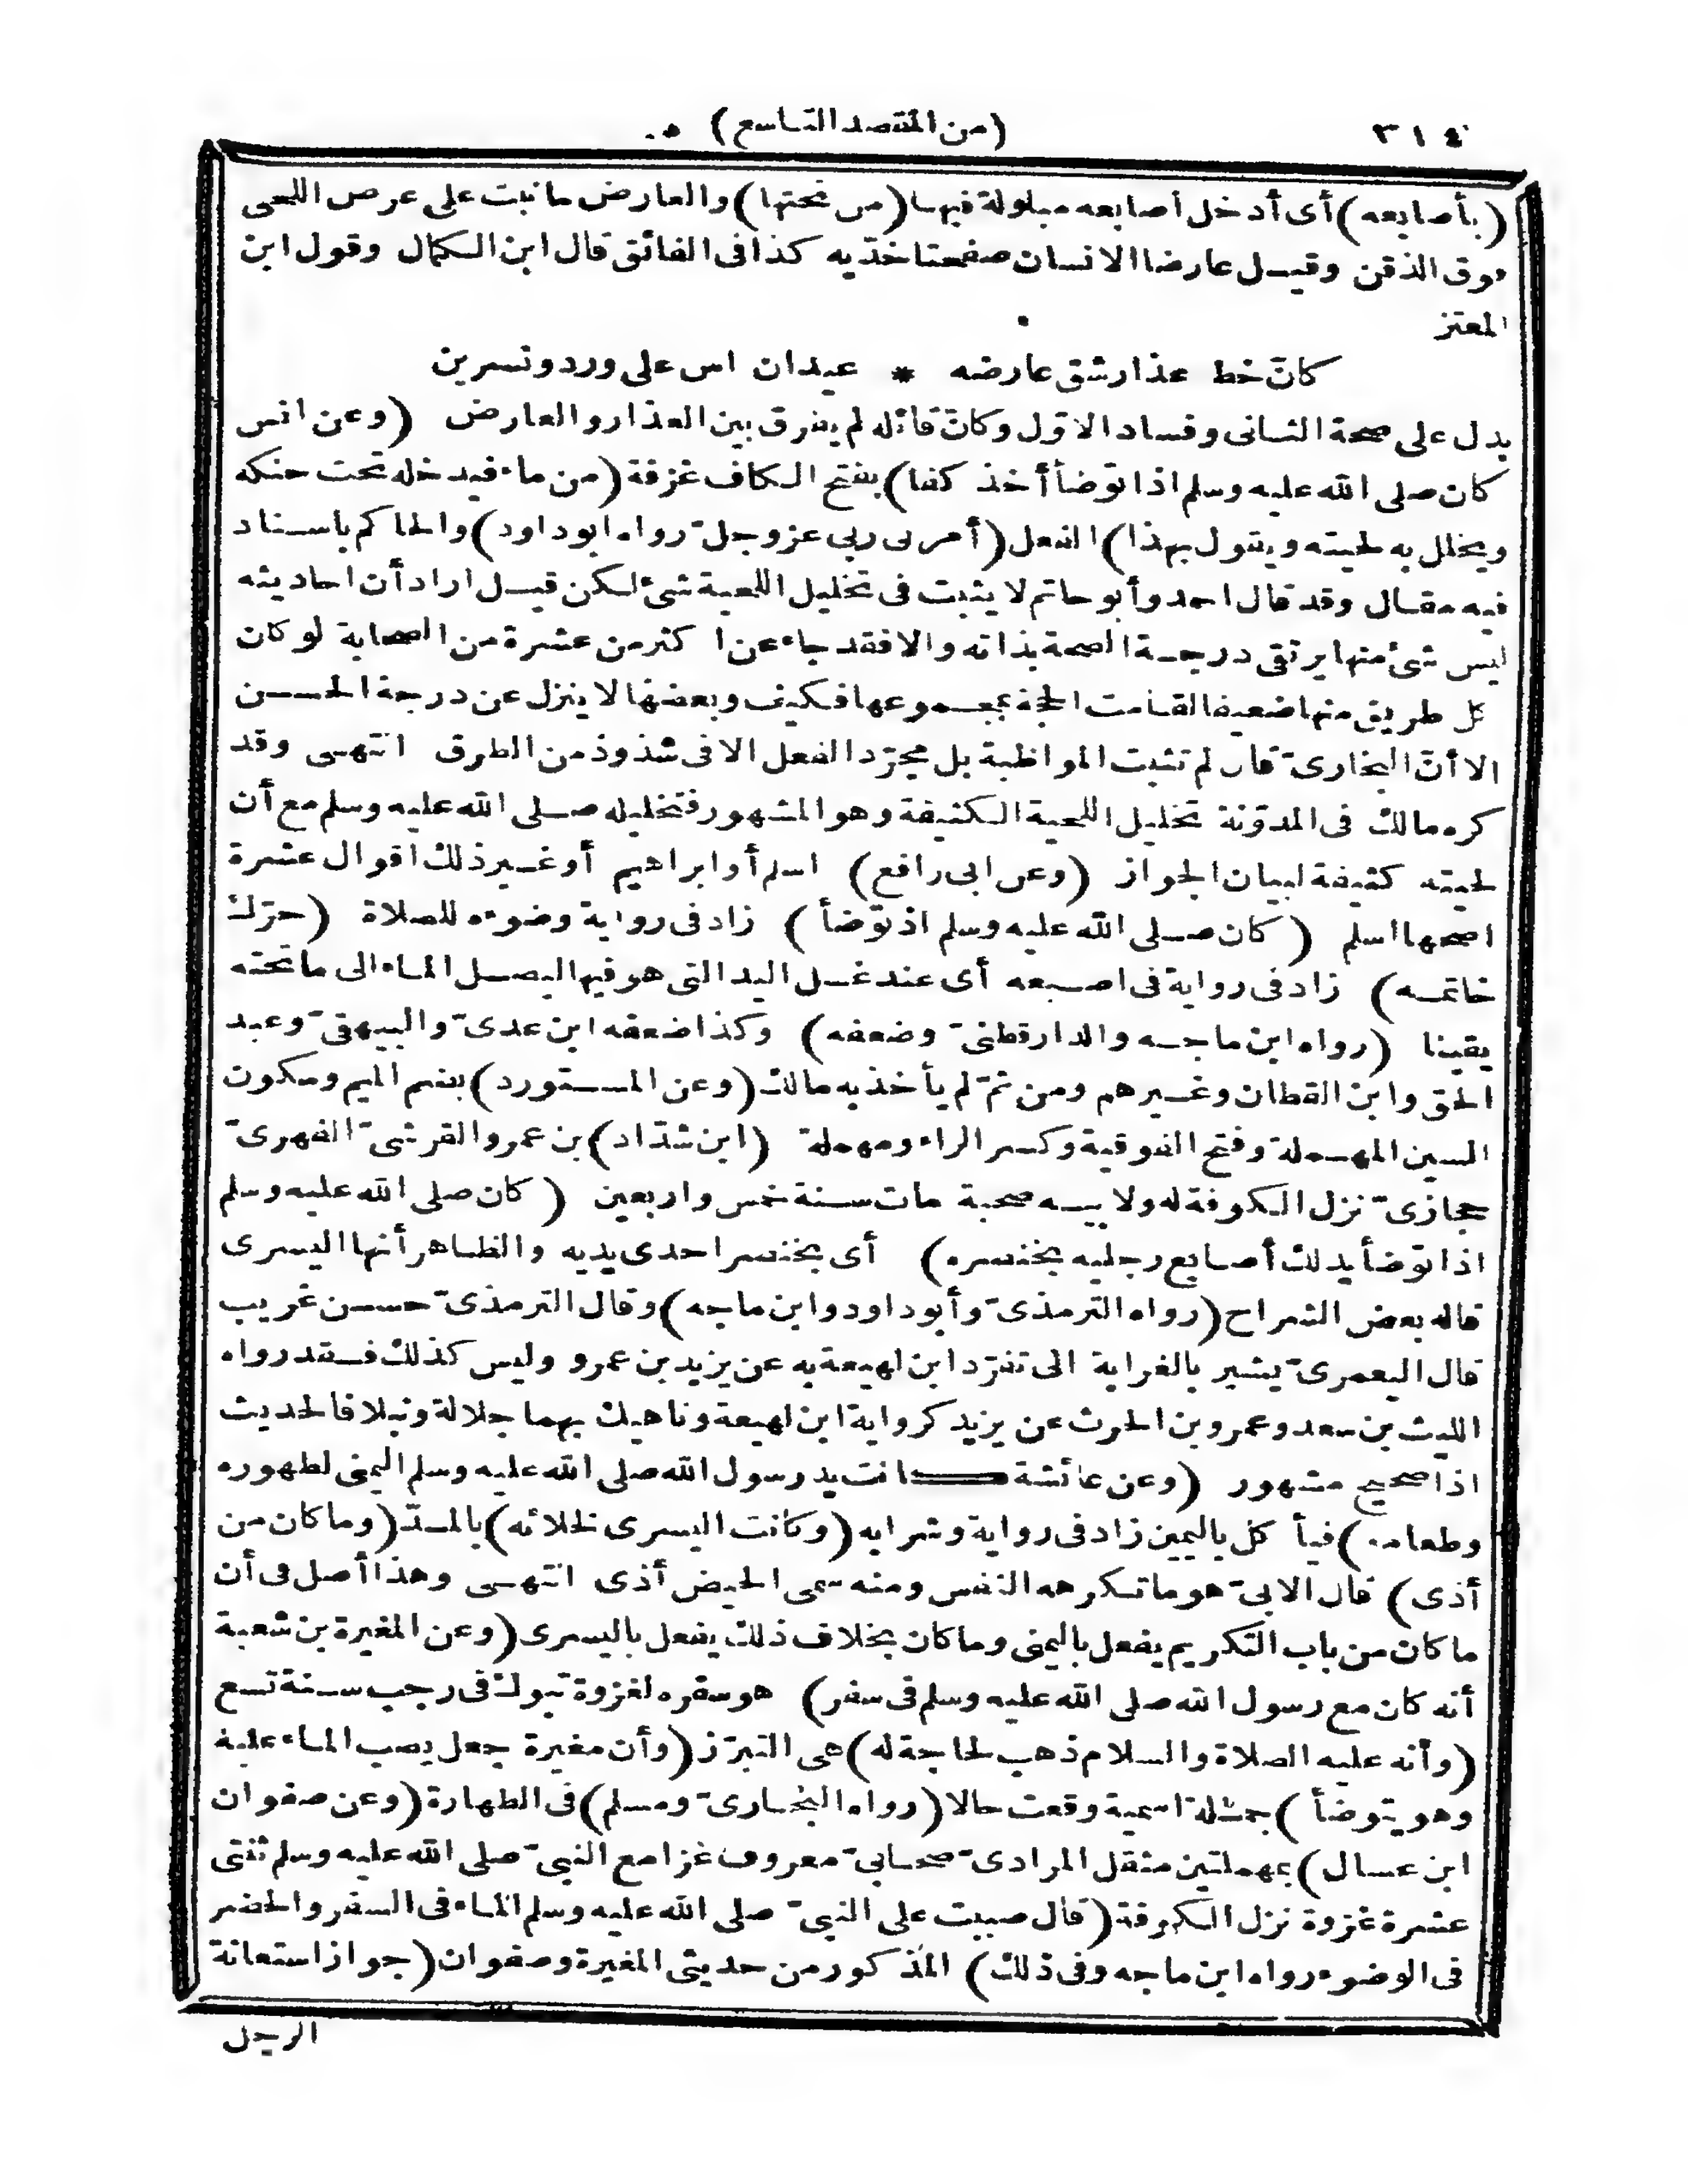 ٣١٤ (من المقصد التاسع)
(بأصابعه) أى أدخل أصابعه مبلولة فيها (من تحتها) والعارض ما نبت على عرض اللحى
فوق الذقن وقيل عارضا الانسان صفحتا خدّيه كذا فى الفائق قال ابن الكمال وقول ابن
المعتز
كانّ خط عذار شق عارضه * عيدان اس على ورد ونسرين
يدل على صحة الثانى وفساد الاوّل وكانّ قائله لم يفرق بين العذار والعارض (وعن انس
كان صلى الله عليه وسلم اذا توّضأ أخذ كفا) بفتح الكاف غرفة (من ماء فيدخله تحت حنكه
ويخلل به لحيته ويقول بهذا) الفعل (أمرنى ربى عز وجلّ رواه ابو داود) والحاكم باسناد
فيه مقال وقد قال احمد وأبو حاتم لا يثبت فى تخليل اللحية شئ لكن قيل اراد أن احاديثه
ليس شئ منها يرتقى درجة الصحة بذاته والا فقد جاء عن اكثر من عشرة من الصحابة لو كان
كل طريق منها ضعيفا لقامت الحجة بمجموعها فكيف وبعضها لا ينزل عن درجة الحسن
الا أنّ البخارىّ قال لم تثبت المواظبة بل مجرّد الفعل الا فى شذوذ من الطرق انتهى وقد
كره مالك فى المدوّنة تخليل اللحية الكثيفة وهو المشهور فتخليله صلى الله عليه وسلم مع أن
لحيته كثيفة لبيان الجواز (وعن ابى رافع) اسلم أو ابراهيم أو غير ذلك اقوال عشرة
اصحها اسلم (كان صلى الله عليه وسلم اذ توّضأ) زاد فى رواية وضوءه للصلاة (حرّك
خاتمه) زاد فى رواية فى اصبعه أى عند غسل اليد التى هو فيها ليصل الماء الى ما تحته
يقينا (رواه ابن ماجه والدارقطنىّ وضعفه) وكذا ضعفه ابن عدىّ والبيهقىّ وعبد
الحق وابن القطان وغيرهم ومن ثمّ لم يأخذ به مالك (وعن المستورد) بضم الميم وسكون
السين المهملة وفتح الفوقية وكسر الراء ومهملة (ابن شدّاد) بن عمرو القرشىّ الفهرىّ
حجازىّ نزل الكوفة له ولابيه صحبة مات سنة خمس واربعين (كان صلى الله عليه وسلم
اذا توّضأ يدلك أصابع رجليه بخنصره) أى بخنصر احدى يديه والظاهر أنها اليسرى
قاله بعض الشراح (رواه الترمذىّ وأبو داود وابن ماجه) وقال الترمذىّ حسن غريب
قال اليعمرىّ يشير بالغرابة الى تفرّد ابن لهيعة به عن يزيد بن عمرو وليس كذلك فقد رواه
الليث بن سعد وعمرو بن الحرث عن يزيد كرواية ابن لهيعة وناهيك بهما جلالة ونبلا فالحديث
اذا صحيح مشهور (وعن عائشة كانت يد رسول الله صلى الله عليه وسلم اليمنى لطهوره
وطعامه) فيأكل باليمين زاد فى رواية وشرابه (وكانت اليسرى لخلائه) بالمدّ (وما كان من
أذى) قال الابىّ هو ما تكرهه النفس ومنه سمى الحيض أذى انتهى وهذا أصل فى أن
ما كان من باب التكريم يفعل باليمنى وما كان بخلاف ذلك يفعل باليسرى (وعن المغيرة بن شعبة
أنه كان مع رسول الله صلى الله عليه وسلم فى سفر) هو سفره لغزوة تبوك فى رجب سنة تسع
(وأنه عليه الصلاة والسلام ذهب لحاجة له) هى التبرّز (وأن مغيرة جعل يصب الماء عليه
وهو يتوضأ) جملة اسمية وقعت حالا (رواه البخارىّ ومسلم) فى الطهارة (وعن صفوان
ابن عسال) بمهملتين مثقل المرادىّ صحابىّ معروف غزا مع النبىّ صلى الله عليه وسلم ثنتى
عشرة غزوة نزل الكوفة (قال صببت على النبىّ صلى الله عليه وسلم الماء فى السفر والحضر
فى الوضوء رواه ابن ماجه وفى ذلك) المذكور من حديثى المغيرة وصفوان (جواز استعانة
الرجل